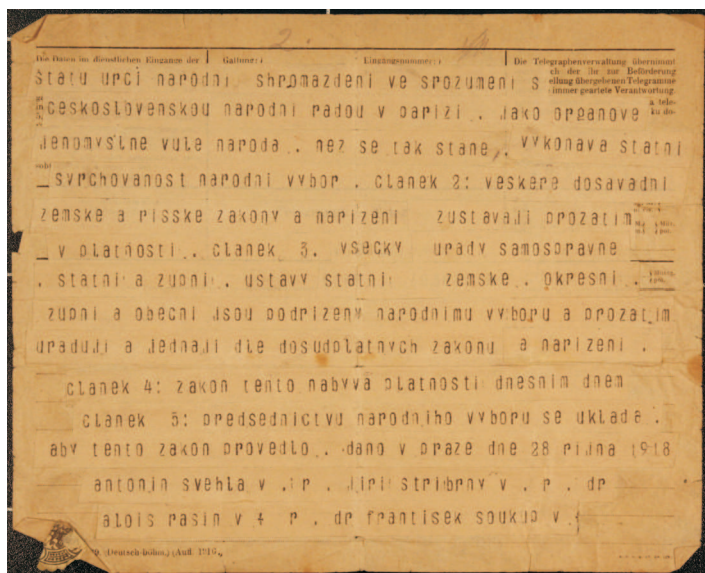 2.
Die Daten im dienstlichen Eingange der Gattung: Eingangsnummer: Die Telegraphenverwaltung übernimmt
statu urci narodni shromazdeni ve srozumeni s ch der ihr zur Beförderung
ellung übergebenen Telegramme
immer geartete Verantwortung.
ceskoslovenskou narodni radou v parizi . jako organove
jenomyslne vule naroda . nez se tak stane , . vykonava statni
_ svrchovanost narodni vybor . clanek 2: veskere dosavadni
zemske a risske zakony a narizeni zustavaji prozatim
_ v platnosti . clanek 3. vsecky urady samospravne
. statni a zupni . ustavy statni zemske . okresni .
zupni a obecni jsou podrizeny narodnimu vyboru a prozatim
uraduji a jednaji dle dosudplatnych zakonu a narizeni .
clanek 4: zakon tento nabyva platnosti dnesnim dnem
clanek 5: predsednictvu narodniho vyboru se uklada .
aby tento zakon provedlo . dano v praze dne 28 rijna 1918
antonin svehla v . r . jiri stribrny v . r . dr
alois rasin v + r . dr frantisek soukup v .
(Deutsch-böhm.) (Aufl. 1916.)